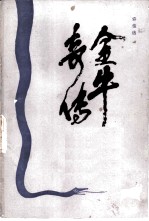 金牛
奇传